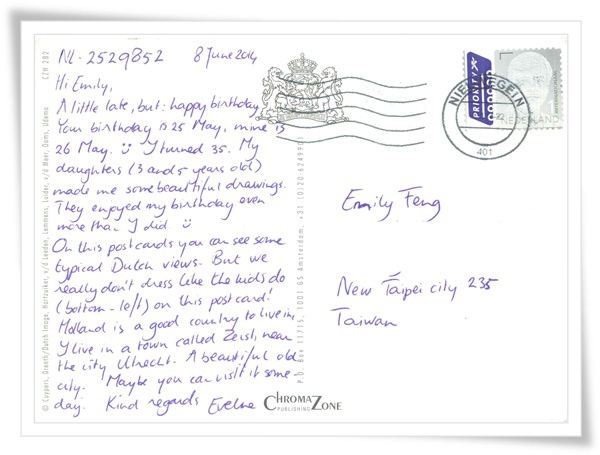 NL-2529852 8 June 2014
Hi Emily,
A little late, but: happy birthday!
Your birthday is 25 May, mine is
26 May. I turned 35. My
daughters (3 and 5 years old)
made me some beautiful drawings.
They enjoyed my birthday even
more than I did
On this postcards you can see some
typical Dutch views. But we
really don't dress like the kids do
(bottom-left) on this postcard!
Holland is a good country to live in,
I live in a town called Zeist, near
the city Utrecht. A beautiful old
city. Maybe you can visit it some-
day. Kind regards Eveline
CZH 282
P.O. Box 11715, 1001 GS Amsterdam, +31 (0)20-6249901
CHROMAZONE
PUBLISHING
PRIORITY
NIEUWEGEIN
401
NEDERLAND
Emily Feng
New Taipei city 235
Taiwan